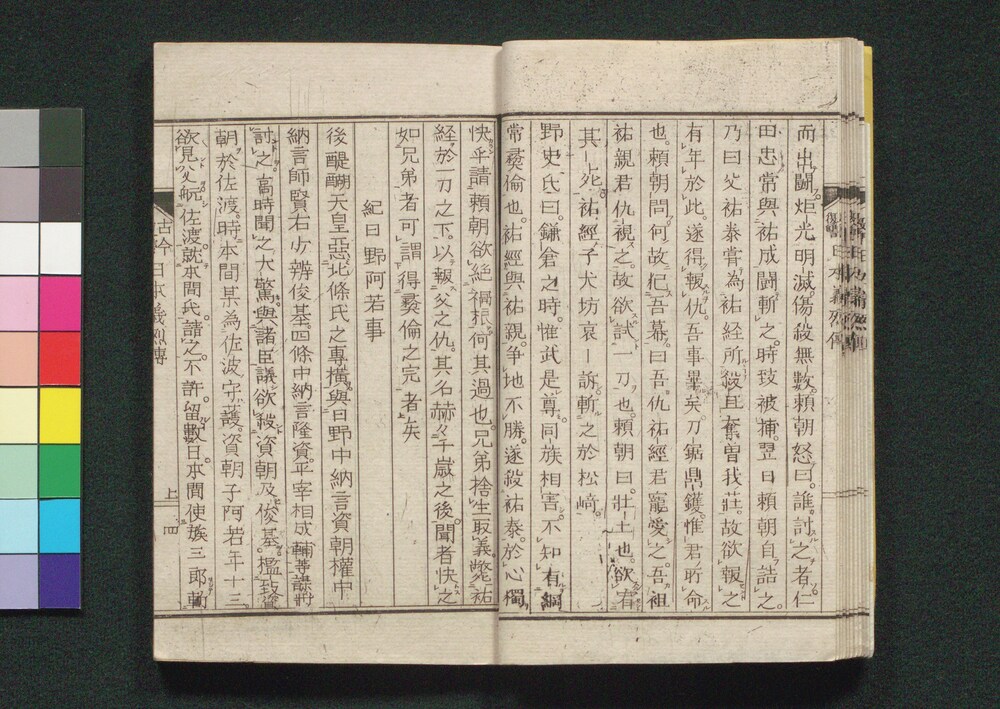 而出鬪。炬光明滅。傷殺無數。賴朝怒曰。誰討之者。仁
田忠常與祐成鬪斬之。時致被捕。翌日賴朝自詰之。
乃曰。父祐泰嘗為祐経所殺。且奪曽我莊。故欲報之
有年於此。遂得報仇。吾事畢矣。刀鋸鼎鑊。惟君所命
也。賴朝問。何故犯吾幕。曰。吾仇祐經。君寵愛之。吾祖
祐親君仇視之。故欲試一刀也。賴朝曰。壯士也。欲宥
其死。祐經子犬坊哀訴。斬之於松﨑。
野史氏曰。鎌倉之時。惟武是尊。同族相害。不知有綱
常彜倫也。祐經與祐親。争地不勝。遂殺祐泰。於心獨
快乎。請賴朝欲絕禍根。何其過也。兄弟捨生取義。斃祐
経於一刀之下。以報父之仇。其名赫々千歳之後。聞者快之
如兄弟者。可謂得彜倫之完者矣
紀日野阿若事
後醍醐天皇惡北條氏之専横。與日野中納言資朝權中
納言師賢右少辨俊基。四條中納言隆資。平宰相成輔等謀將
討之。高時聞之大驚。與諸臣議。欲殺資朝及俊基。檻致資
朝於佐渡。時本間某為佐波守護。資朝子阿若年十三
欲見父航佐渡。就本間氏。請之。不許。留數日。本間使族三郎斬
古今日本義烈傳
上 四